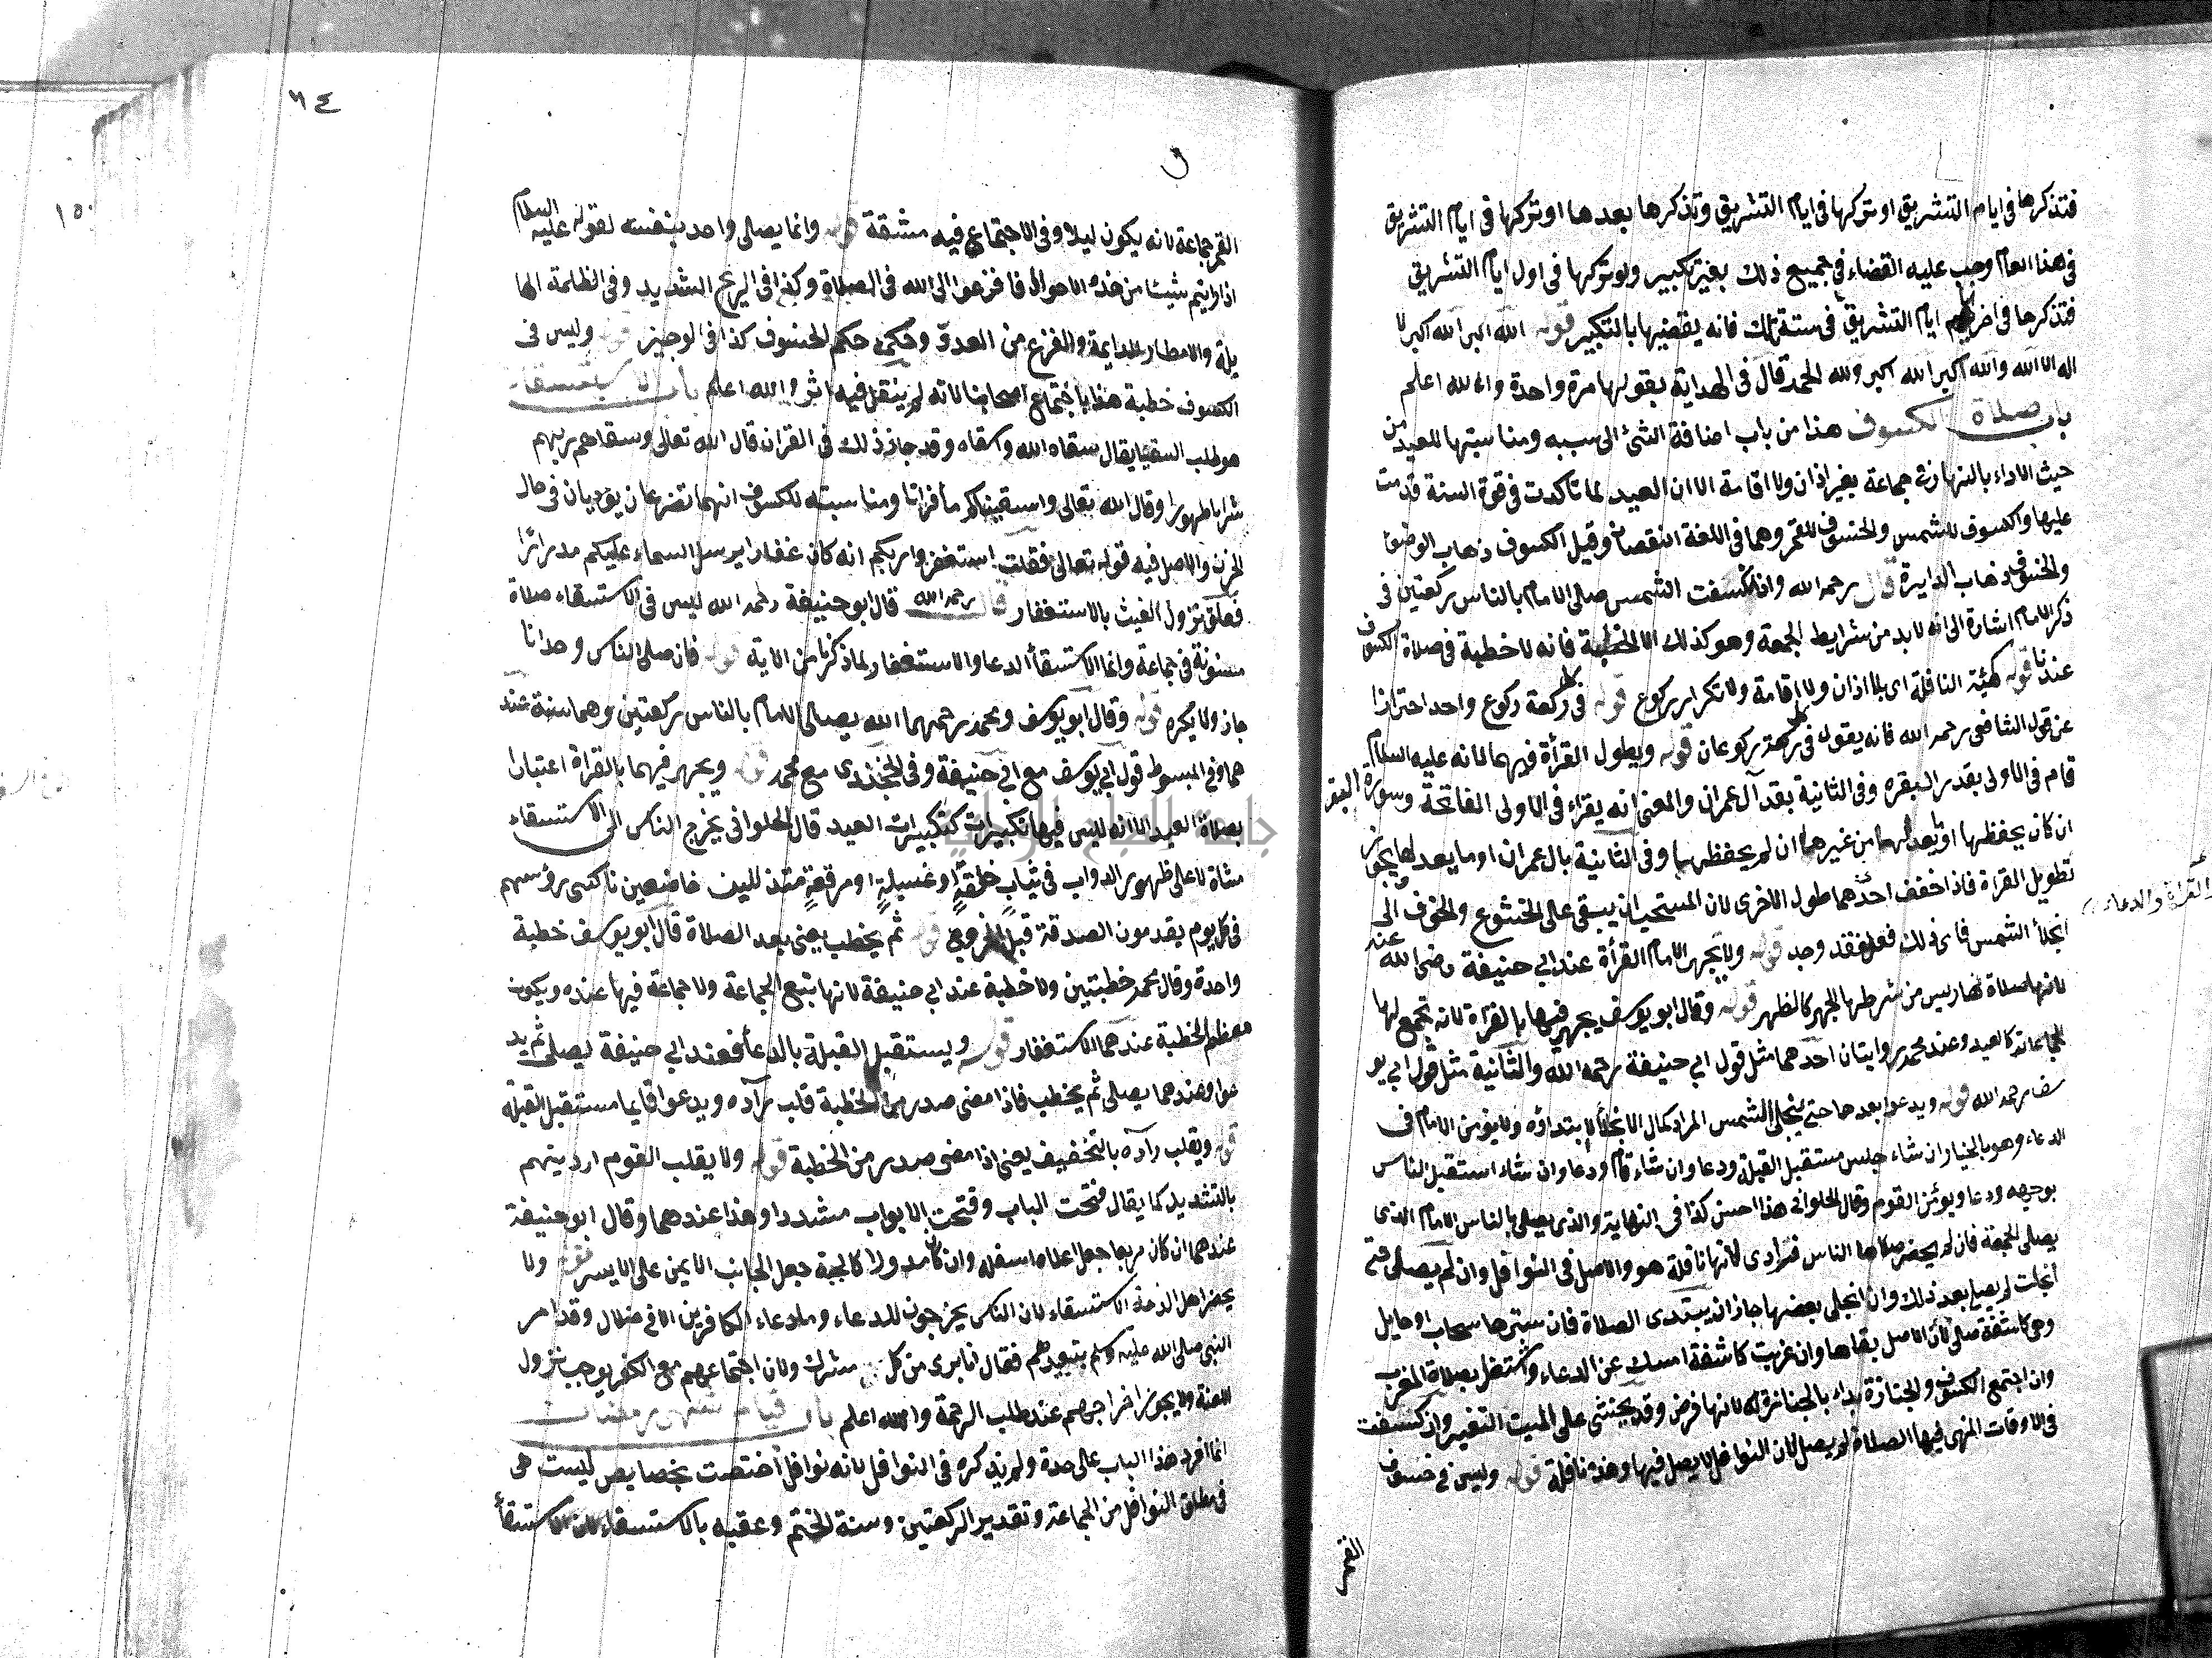 فتذكرها في ايام التشريق او تركها في ايام التشريق وتذكرها بعدها او تركها في ايام التشريق
في هذا العام وجب عليه القضاء في جميع ذلك بغير تكبير ولو تركها في اول ايام التشريق
فتذكرها في اخر ايام التشريق في سنة تلك فانه يقضيها بالتكبير قوله الله اكبر الله اكبر لا
اله الا الله والله اكبر الله اكبر ولله الحمد قال في الهداية يقولها مرة واحدة والله اعلم
باب صلاة الكسوف هذا من باب اضافة الشئ الى سببه ومناسبتها للعيد من
حيث الاداء بالنهار في جماعة بغير اذان ولا اقامة الا ان العيد لما تاكدت في قوة السنة قدمت
عليها والكسوف للشمس والخسوف للقمر وهما في اللغة النقصان وقيل الكسوف ذهاب الوضؤ
والخسوف ذهاب الدايرة قال رحمه الله واذا انكسفت الشمس صلى الامام بالناس ركعتين في
ذكر الامام اشارة الى انه لا بد من شرايط الجمعة وهو كذلك الا الخطبة فانه لا خطبة في صلاة الكسوف
عندنا قوله كهيئة النافلة اي بلا اذان ولا اقامة ولا تكرار ركوع قوله في كل ركعة ركوع واحد احترازا
عن قول الشافعي رحمه الله فانه يقول في كل ركعة ركوعان قوله ويطول القرأة فيهما لانه عليه السلام
قام في الاولى بقدر البقره وفي الثانية بقدر آل عمران والمعنى انه يقراء في الاولى الفاتحة وسورة البقر
ان كان يحفظها او يعدلها من غيرها ان لم يحفظها وفي الثانية بال عمران او ما يعدلها يجوز
تطويل القراة فاذا خفف احدهما طول الاخرى لان المستحب ان يبقى على الخشوع والخوف الى
والقراة والدعاء
انجلاء الشمس فاى ذلك فعل فقد وجد قوله ولا يجهر الامام القرأة عند ابي حنيفة رضي الله عنه
لانها صلاة نهار ليس من شرطها الجهر كالظهر قوله وقال ابو يوسف يجهر فيها بالقراة لانه تجمع لها
الجماعات كالعيد وعند محمد روايتان احدهما مثل قول ابي حنيفة رحمه الله والثانية مثل قول ابي يو
سف رحمه الله قوله ويدعوا بعدها حتى تنجلي الشمس المراد كمال الانجلاء لا ابتداؤه ولا يؤمن الامام في
الدعاء وهو بالخيار ان شاء جلس مستقبل القبلة ودعا وان شاء قام ودعا وان شاء استقبل الناس
بوجهه ودعا ويؤمن القوم وقال الحلواني هذا احسن كذا في النهاية والذي يصلى بالناس الامام الذي
يصلى الجمعة فان لم يحضر صلاها الناس فرادى لانها نافلة هو والاصل في النوافل وان لم يصلى حتى
انجلت لم يصل بعد ذلك وان انجلى بعضها جاز ان يبتدى الصلاة فان سترها سحاب او حايل
وهي كاسفة صلى لان الاصل بقاها وان غربت كاسفة امسك عن الدعاء واشتغل بصلاة المغرب
وان اجتمع الكسوف والجنازة بداء بالجنازة لانها فرض وقد يخشى على الميت التغير وان كسفت
في الاوقات المنهى فيها الصلاة لم يصل لان النوافل لا يصل فيها وهذه نافلة قوله وليس في خسوف
القمر
٦٤
القمر جماعة لانه يكون ليلا وفي الاجتماع فيه مشقة قوله وانما يصلى واحد بنفسه لقوله عليه السلام
اذا رايتم شيئا من هذه الاحوال فافزعوا الى الله في الصلاة وكذا في الريح الشديد وفي الظلمة الها
يلة والامطار الدايمة والفزع من العدو وحكمه حكم الخسوف كذا في الوجيز قوله وليس في
الكسوف خطبة هذا باجتماع اصحابنا لانه لم ينقل فيه اثر والله اعلم باب الاستسقاء
هو طلب السقيا يقال سقاه الله واسقاه وقد جاز ذلك في القران قال الله تعالى وسقاهم ربهم
شرابا طهورا وقال الله تعالى واسقيناكم ماً فراتا ومناسبته للكسوف انهما تضرعان يؤديان في حال
الحزن والاصل فيه قوله تعالى فقلت استغفروا ربكم انه كان غفارا يرسل السماء عليكم مدرارًا
فعلق نزول الغيث بالاستغفار قال رحمه الله قال ابو حنيفة رحمه الله ليس في الاستسقاء صلاة
مسنونة في جماعة وانما الاستسقأ الدعا والاستغفار لما ذكرنا من الاية قوله فان صلى الناس وحدانا
جاز ولا يكره قوله وقال ابو يوسف ومحمد رحمهما الله يصلى الامام بالناس ركعتين وهما سنة عند
هما وفي المبسوط قول ابي يوسف مع ابي حنيفة وفي الخجندى مع محمد قوله ويجهر فيهما بالقراة اعتبارا
بصلاة العيد الا انه ليس فيها تكبيرات كتكبيرات العيد قال الحلواني يخرج الناس الى الاستسقاء
مشاة لا على ظهور الدواب في ثياب خلقةٍ او غسيلةٍ او مرقعةٍ متذللين خاضعين ناكسى رؤسهم
في كل يوم يقدمون الصدقة قبل الخروج قوله ثم يخطب يعني بعد الصلاة قال ابو يوسف خطبة
واحدة وقال محمد خطبتين ولا خطبة عند ابي حنيفة لانها تتبع الجماعة ولا جماعة فيها عنده ويكون
معظم الخطبة عندهما الاستغفار قوله ويستقبل القبلة بالدعأ فعند ابي حنيفة يصلى ثم يد
عوا وعندهما يصلى ثم يخطب فاذا مضى صدر من الخطبة قلب رداه ويدعوا قايما مستقبل القبلة
قوله ويقلب رداه بالتخفيف يعنى اذا مضى صدر من الخطبة قوله ولا يقلب القوم ارديتهم
بالتشديد كما يقال فتحت الباب وفتحت الابواب مشددا وهذا عندهما وقال ابو حنيفة
عندهما ان كان مربعا جعل اعلاه اسفله وان كان مدورا كالجبة جعل الجانب الايمن على الايسر قوله ولا
يحضر اهل الذمة الاستسقاء لان الناس يخرجون للدعاء وما دعاء الكافرين الا في ضلال وقد امر
النبي صلى الله عليه وسلم بتبعيدهم فقال انا برى من كل مشرك ولان اجتماعهم مع الكفر يوجب نزول
اللعنة ولا يجوز اخراجهم عند طلب الرحمة والله اعلم باب قيام شهر رمضان
انما افرد هذا الباب على حدة ولم يذكره في النوافل لانه نوافل اختصت بخصايص ليست هي
في مطلق النوافل من الجماعة وتقدير الركعتين وسنة الختم وعقبه بالاستسقاء لان الاستسقأ